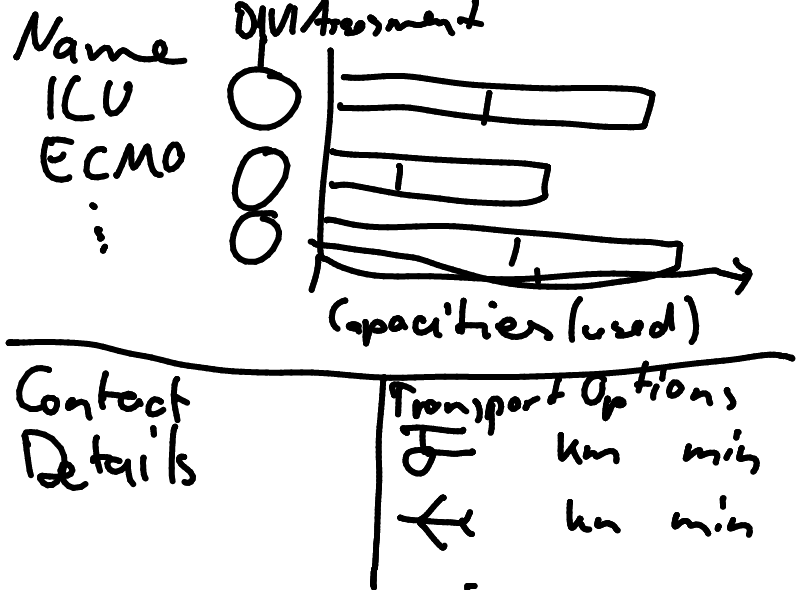 Name
DIVI Assessment
ICU
ECMO
⋮
Capacities (used)
Contact
Details
Transport Options
km min
km min